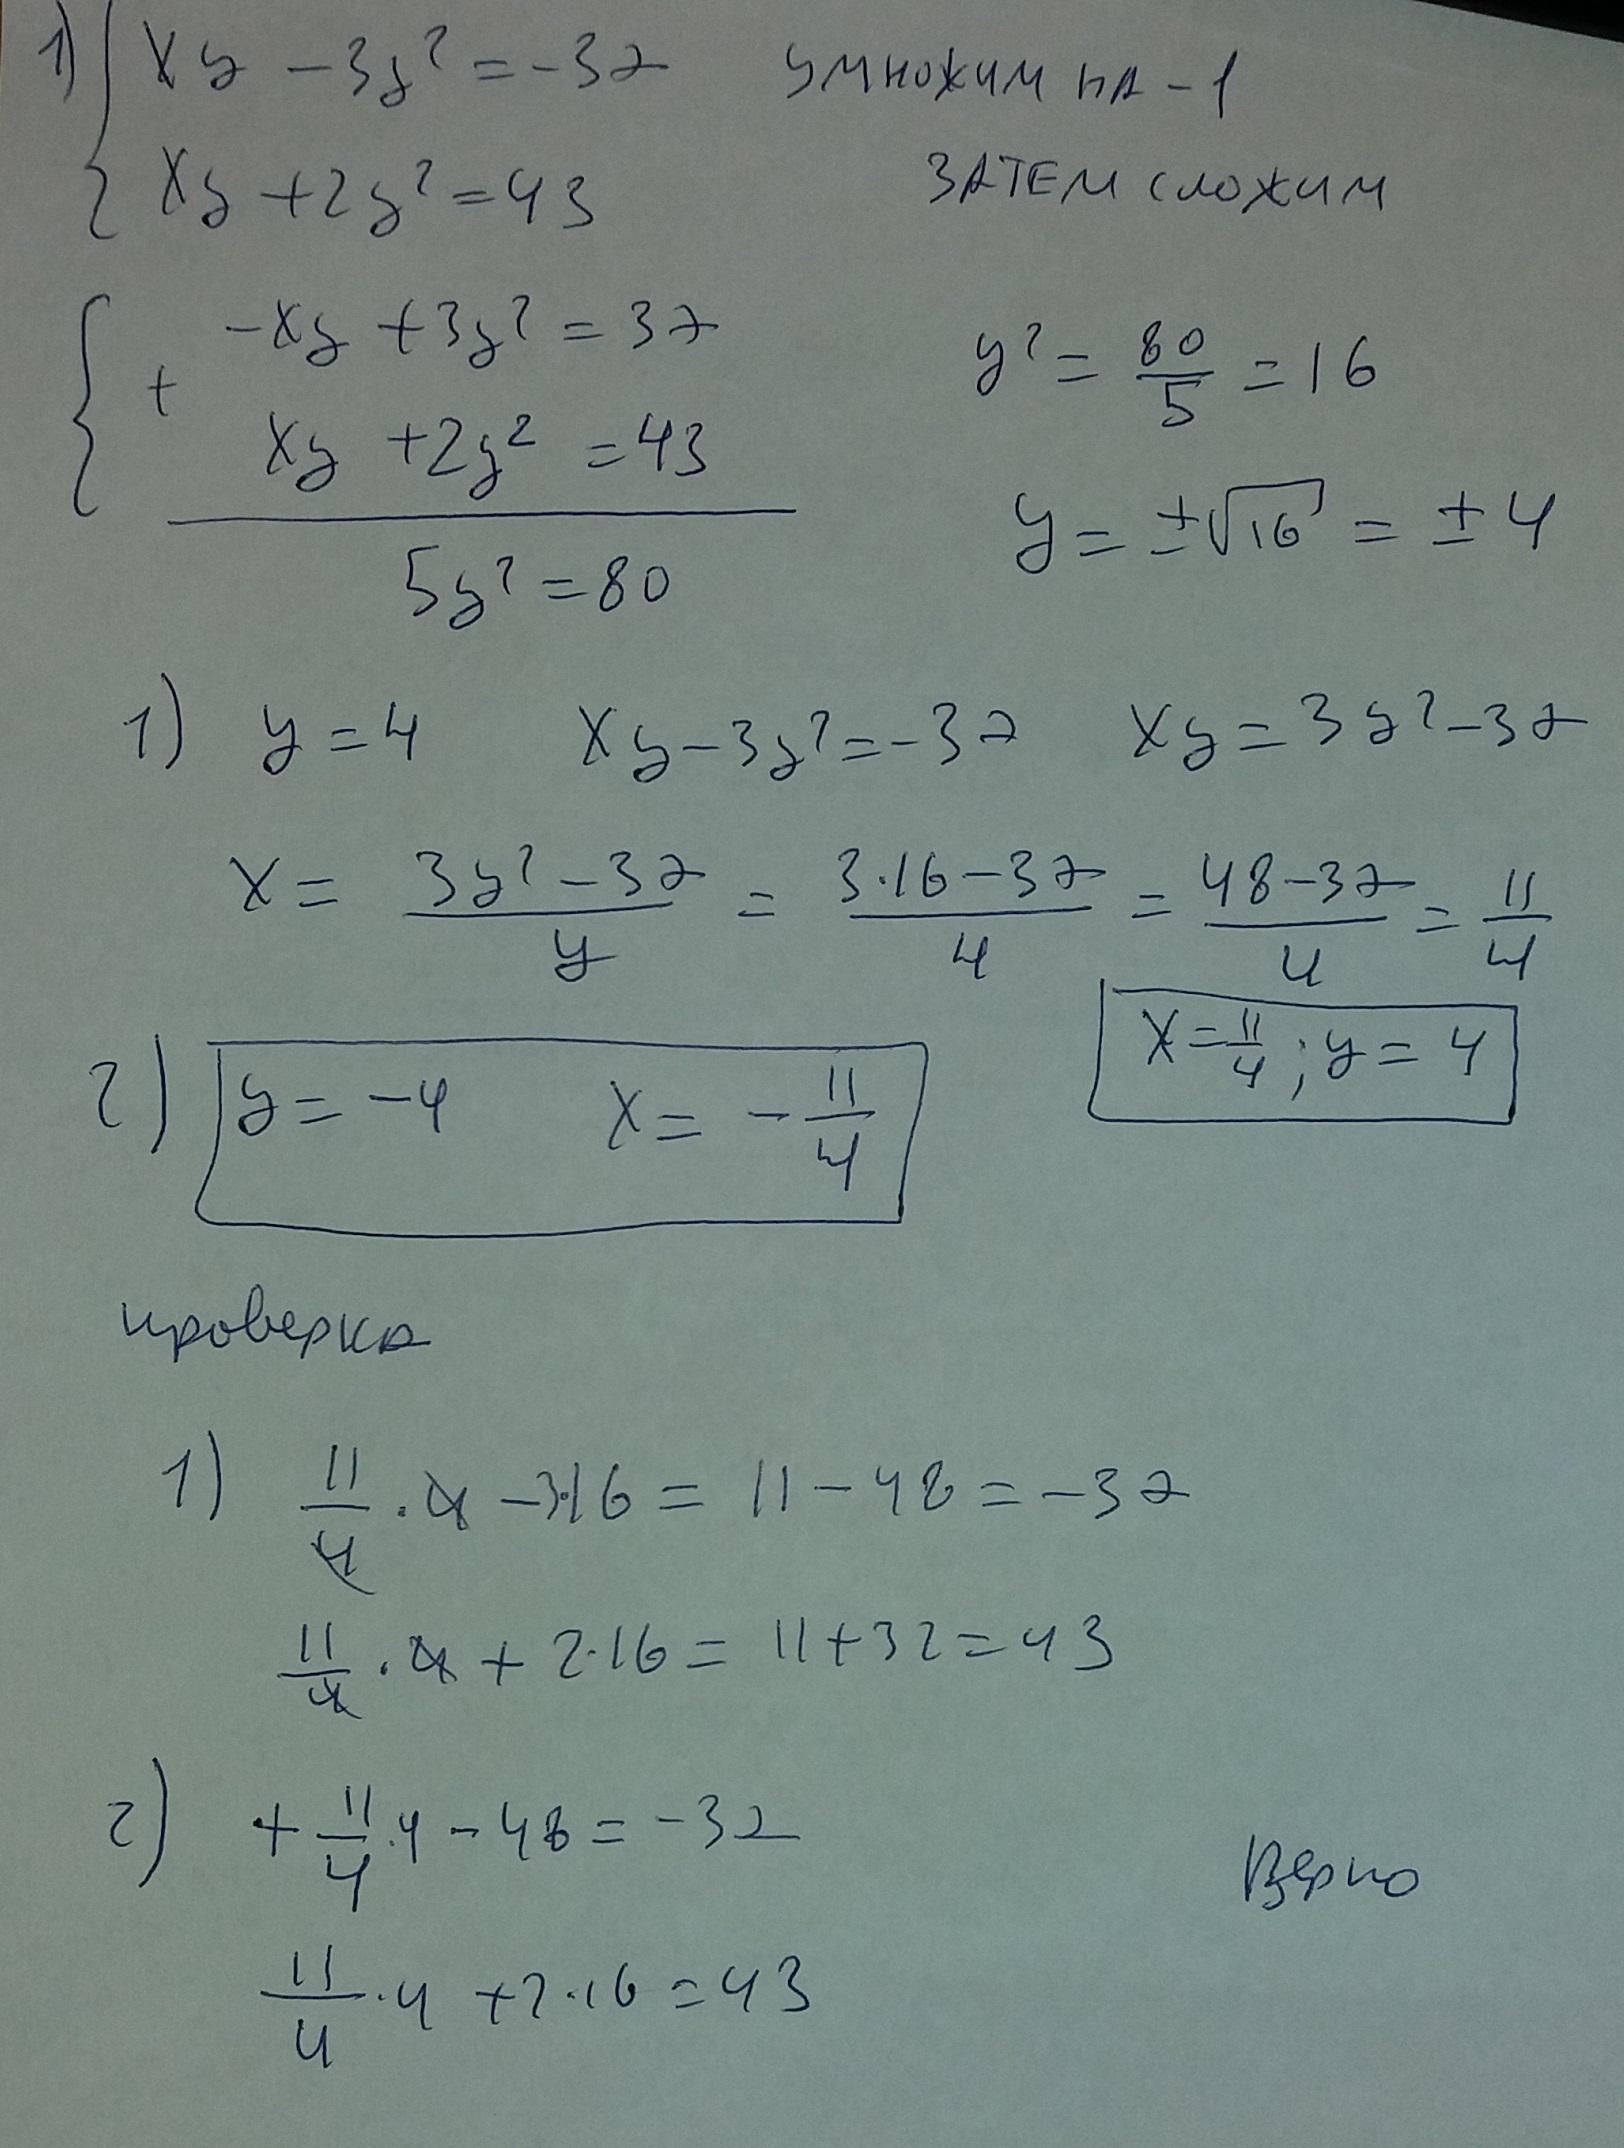 1) { xy - 3y² = -37 умножим на -1
xy + 2y² = 43 затем сложим
{ + -xy + 3y² = 37
xy + 2y² = 43
5y² = 80
y² = 80/5 = 16
y = ±√16 = ±4
1) y = 4 xy - 3y² = -37 xy = 3y² - 37
x = (3y² - 37)/y = (3·16 - 37)/4 = (48 - 37)/4 = 11/4
x = 11/4 ; y = 4
2) y = -4 x = - 11/4
проверка
1) 11/4 · 4 - 3·16 = 11 - 48 = -37
11/4 · 4 + 2·16 = 11 + 32 = 43
2) + 11/4 · 4 - 48 = -37
11/4 · 4 + 2·16 = 43
Верно